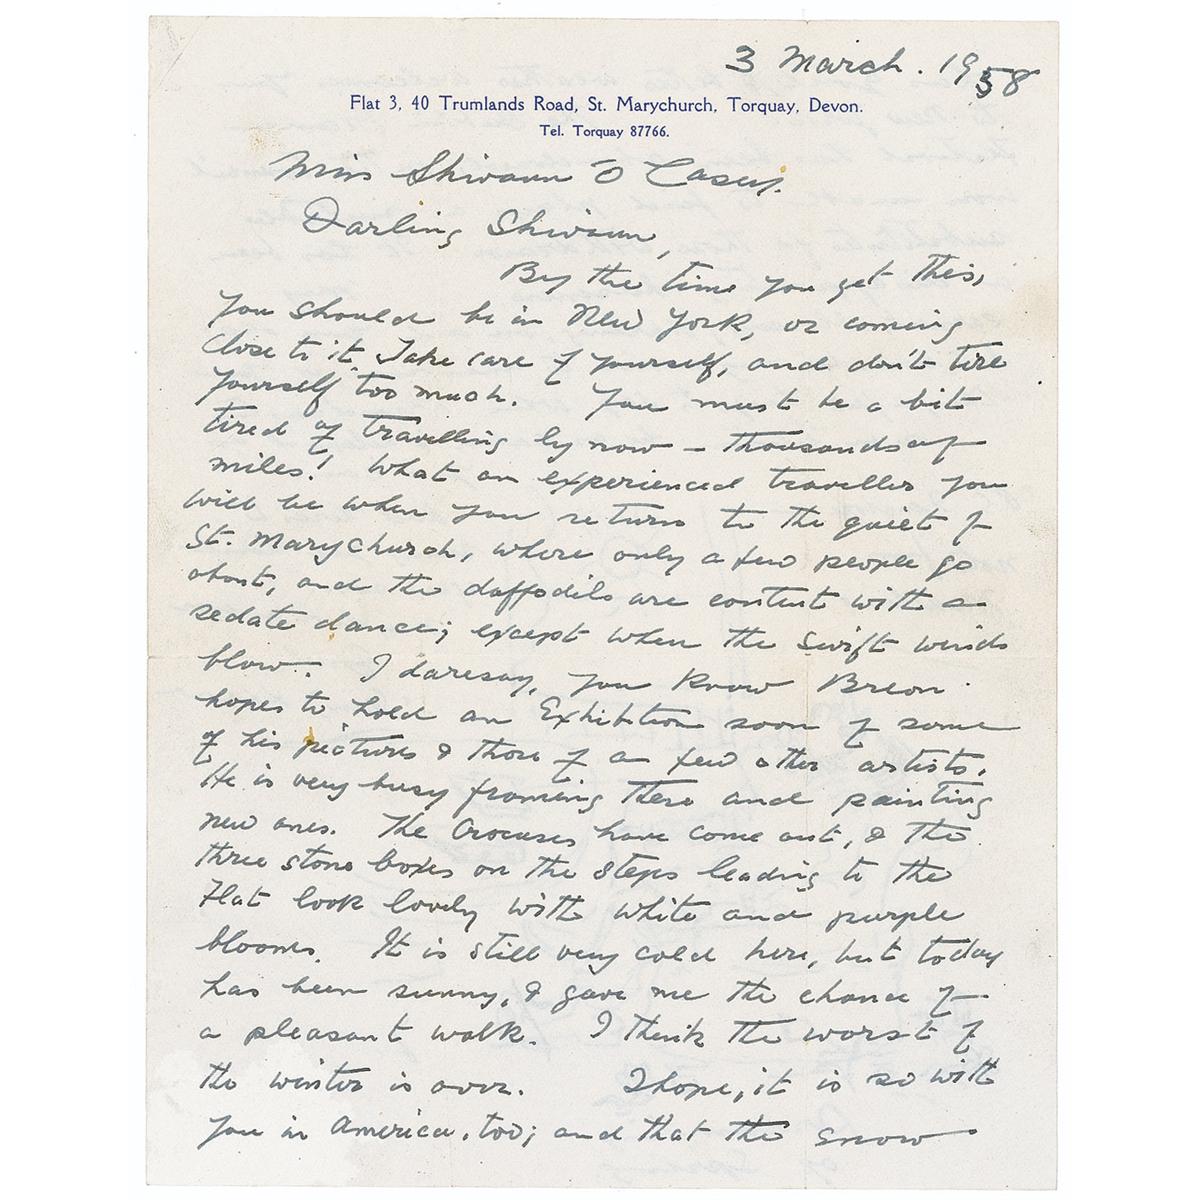 3 March. 1958
Flat 3, 40 Trumlands Road, St. Marychurch, Torquay, Devon.
Tel. Torquay 87766.
Miss Shivaun O Casey.
Darling Shivaun,
By the time you get this,
you should be in New York, or coming
close to it. Take care of yourself, and don't tire
yourself too much. You must be a bit
tired of travelling by now – thousands of
miles! What an experienced traveller you
will be when you return to the quiet of
St. Marychurch, where only a few people go
about, and the daffodils are content with a
sedate dance; except when the swift winds
blow. I daresay, you know Breon
hopes to hold an Exhibition soon of some
of his pictures & those of a few other artists.
He is very busy framing these and painting
new ones. The Crocuses have come out, & the
three stone boxes on the steps leading to the
Flat look lovely with white and purple
blooms. It is still very cold here, but today
has been sunny, & gave me the chance of
a pleasant walk. I think the worst of
the winter is over. I hope, it is so with
you in America, too; and that the snow